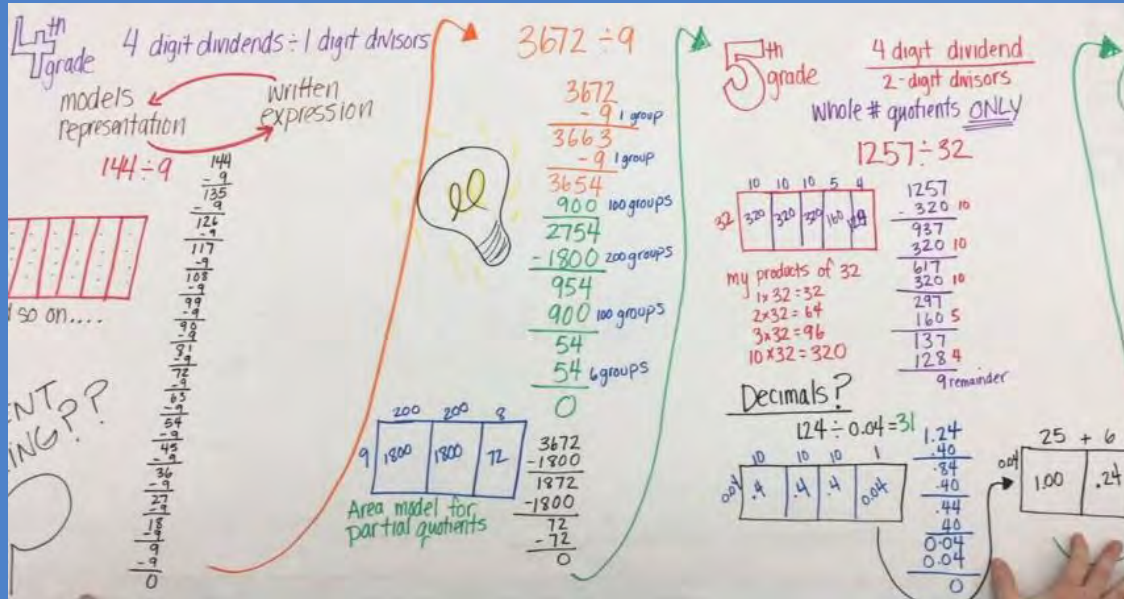 4th grade
4 digit dividends ÷ 1 digit divisors
models
representation
written
expression
144 ÷ 9
so on....
144
- 9
135
- 9
126
- 9
117
- 9
108
- 9
99
- 9
90
- 9
81
- 9
72
- 9
63
- 9
54
- 9
45
- 9
36
- 9
27
- 9
18
- 9
9
- 9
0
3672 ÷ 9
3672
- 9 1 group
3663
- 9 1 group
3654
900 100 groups
2754
- 1800 200 groups
954
900 100 groups
54
54 6 groups
0
200 200 8
9 1800 1800 72
Area model for
partial quotients
3672
- 1800
1872
- 1800
72
- 72
0
5th grade
4 digit dividend
2-digit divisors
whole # quotients ONLY
1257 ÷ 32
10 10 10 5 4
32 320 320 320 160
my products of 32
1 x 32 = 32
2 x 32 = 64
3 x 32 = 96
10 x 32 = 320
1257
- 320 10
937
320 10
617
320 10
297
160 5
137
128 4
9 remainder
Decimals?
1.24 ÷ 0.04 = 31
10 10 10 1
0.04 .4 .4 .4 0.04
1.24
.40
.84
.40
.44
40
0.04
0.04
0
25 + 6
0.04 1.00 .24